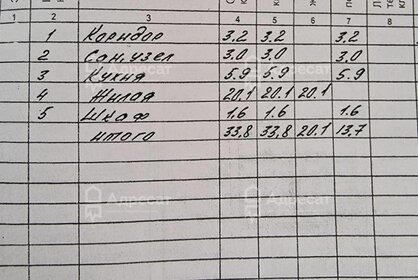 1 2 3 4 5 6 7 8
1 Коридор 3,2 3,2 3,2
2 Сан.узел 3.0 3,0 3,0
3 Кухня 5.9 5.9 5.9
4 Жилая 20.1 20.1 20.1
5 Шкаф 1,6 1.6 1.6
итого 33,8 33,8 20.1 13,7
Адресат
Адресат
Адресат
Адресат